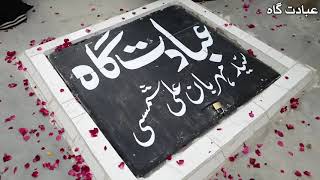 عبادت گاہ
عبادت گاہ
سید مہربان علی شمسی